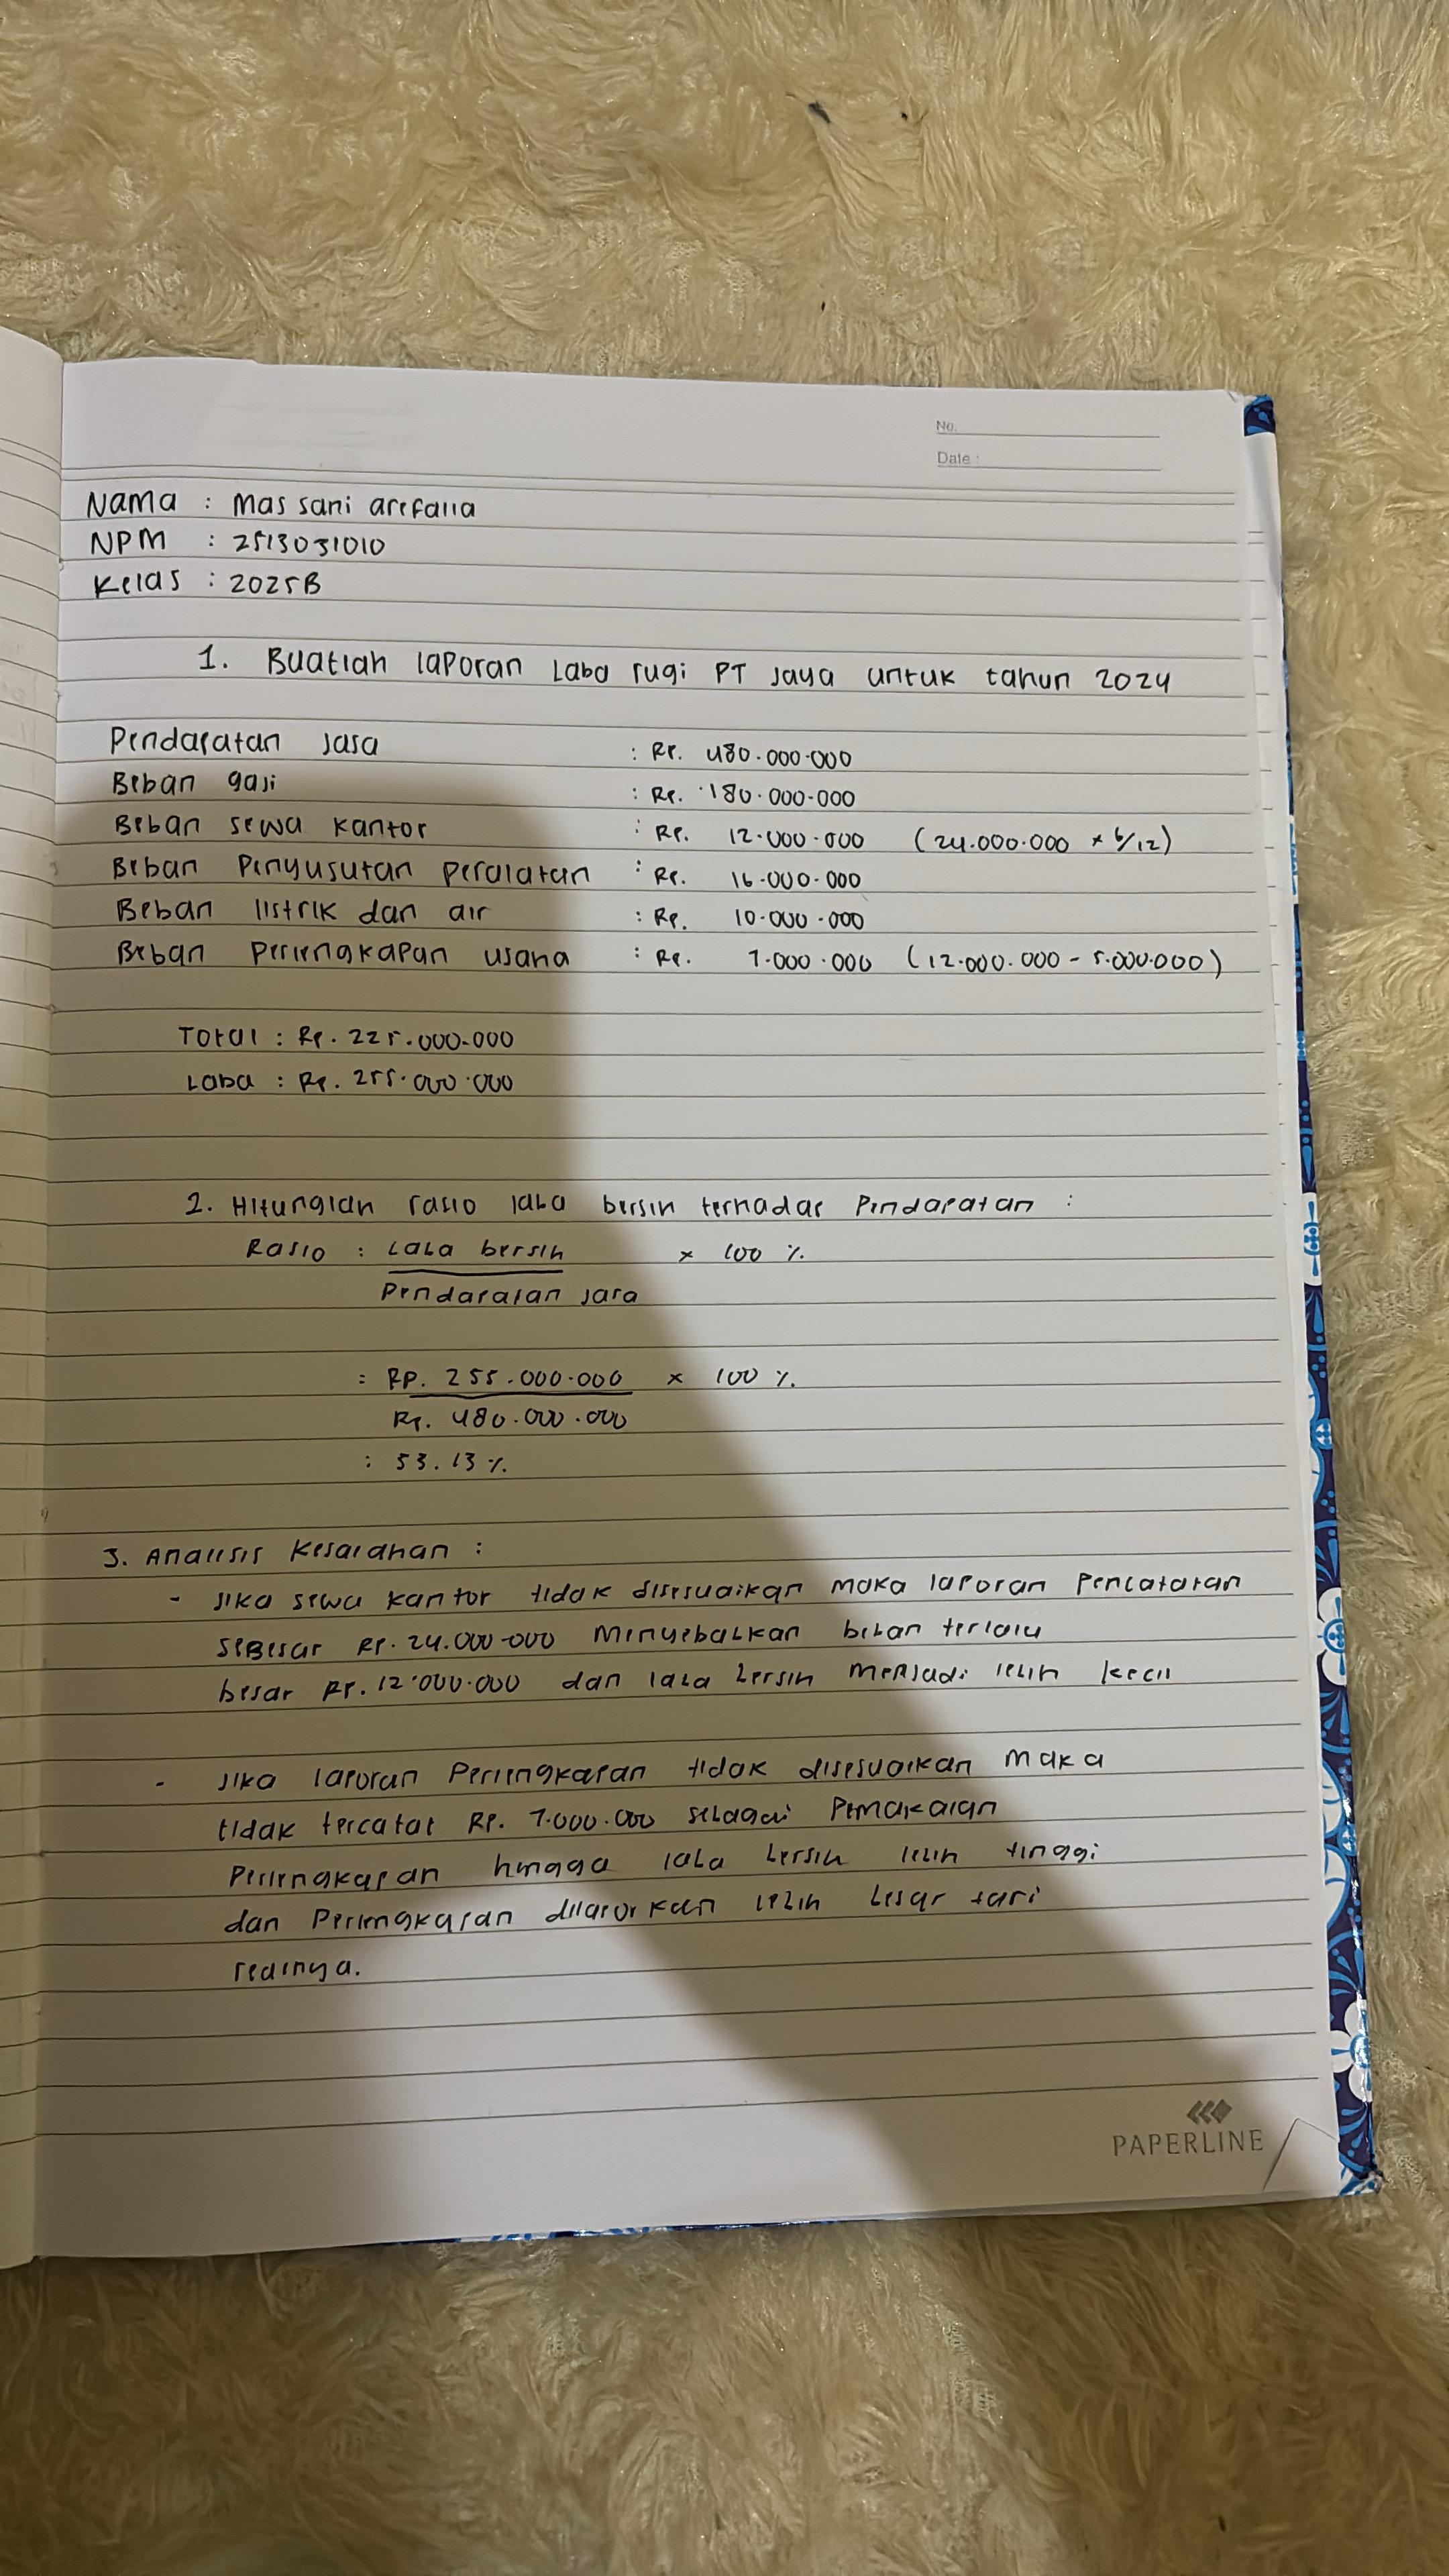 No.
Date :
Nama : Mas sani arefalia
NPM : 2513031010
Kelas : 2025B
1. Buatlah laporan Laba rugi PT Jaya untuk tahun 2024
Pendapatan Jasa : Rp. 480.000.000
Beban gaji : Rp. 180.000.000
Beban sewa kantor : Rp. 12.000.000 (24.000.000 x 6/12)
Beban Penyusutan peralatan : Rp. 16.000.000
Beban listrik dan air : Rp. 10.000.000
Beban perlengkapan usaha : Rp. 7.000.000 (12.000.000 - 5.000.000)
Total : Rp. 225.000.000
Laba : Rp. 255.000.000
2. Hitunglah rasio laba bersih terhadap Pendapatan :
Rasio : Laba bersih x 100 %
Pendapatan Jasa
: RP. 255.000.000 x 100 %
Rp. 480.000.000
: 53.13 %
3. Analisis Kesalahan :
- Jika sewa kantor tidak disesuaikan maka laporan Pencatatan
sebesar Rp. 24.000.000 Menyebabkan beban terlalu
besar Rp. 12.000.000 dan laba bersih menjadi lebih kecil
- Jika laporan Perlengkapan tidak disesuaikan maka
tidak tercatat Rp. 7.000.000 sebagai Pemakaian
Perlengkapan hingga laba bersih lebih tinggi
dan Perlengkapan dilaporkan lebih besar dari
realnya.
PAPERLINE